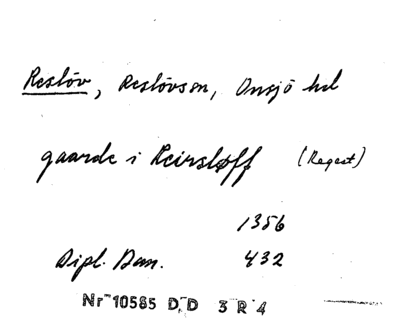 Reslöv, Reslövs sn, Onsjö hd
gaarde i Reirsløff (Regest)
1356
Dipl. Dan. 432
Nr 10585 D D 3 R 4